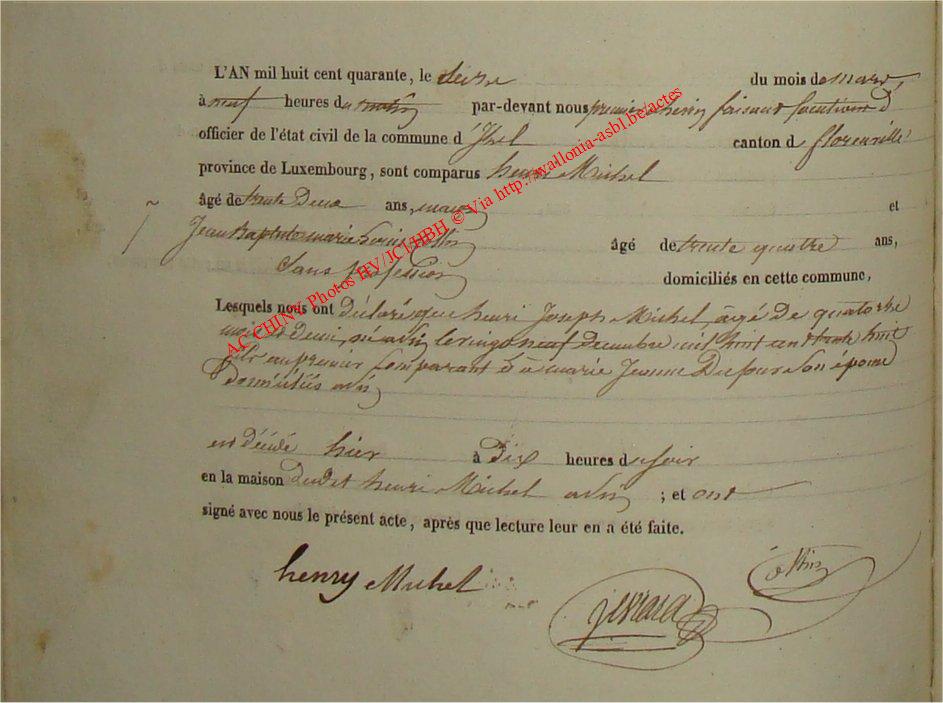 L'AN mil huit cent quarante, le seize du mois de mars,
à neuf heures du matin par-devant nous premier faisant fonctions d'
officier de l'état civil de la commune d'Izel canton de florenville
province de Luxembourg, sont comparus henri Michel
âgé de trente Deux ans, maçon et
Jean Baptiste marie âgé de trente quatre ans,
Sans profession domiciliés en cette commune,
Lesquels nous ont Déclaré que henri Joseph Michel, agé De quatorze
mois et Demi, né à izel, le vingt neuf Decembre mil huit cent trente huit
fils au premier Comparant et à marie Jeanne Dufour Son épouse
Domiciliés à izel
est décédé hier à Dix heures du soir
en la maison dudit henri Michel à izel ; et ont
signé avec nous le présent acte, après que lecture leur en a été faite.
henry Michel
AC CHINY Photos HV/JCI/HBH © Via http://wallonia-asbl.be/actes